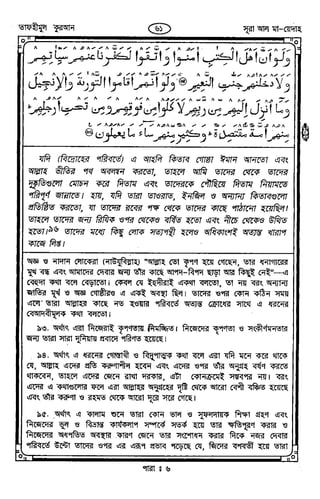 তাফহীমুল কুরআন
৬১
সূরা আল মা-য়েদাহ
وَلَوْ أَنَّ أَهْلَ الْكِتٰبِ اٰمَنُوْا وَاتَّقَوْا لَكَفَّرْنَا عَنْهُمْ سَيِّاٰتِهِمْ
وَلَاَدْخَلْنٰهُمْ جَنّٰتِ النَّعِيْمِ ۝ وَلَوْ أَنَّهُمْ أَقَامُوا التَّوْرٰىةَ وَالْاِنْجِيْلَ
وَمَا أُنْزِلَ اِلَيْهِمْ مِّنْ رَّبِّهِمْ لَاَكَلُوْا مِنْ فَوْقِهِمْ وَمِنْ تَحْتِ أَرْجُلِهِمْ
مِنْهُمْ أُمَّةٌ مُّقْتَصِدَةٌ وَكَثِيْرٌ مِّنْهُمْ سَاءَ مَا يَعْمَلُوْنَ ۝
যদি (বিদ্রোহের পরিবর্তে) এ আহলি কিতাব গোষ্ঠী ঈমান আনতো এবং
আল্লাহ ভীতির পথ অবলম্বন করতো, তাহলে আমি তাদের থেকে তাদের
দুষ্কৃতিগুলো মোচন করে দিতাম এবং তাদেরকে পৌঁছিয়ে দিতাম নিয়ামতে
পরিপূর্ণ জান্নাতে। হায়, যদি তারা তাওরাত, ইনজিল ও অন্যান্য কিতাবগুলো
প্রতিষ্ঠিত করতো, যা তাদের রবের পক্ষ থেকে তাদের কাছে পাঠানো হয়েছিল।
তাহলে তাদের জন্য রিযিক ওপর থেকেও বর্ষিত হতো এবং নীচে থেকেও উত্থিত
হতো।৯৬ তাদের মধ্যে কিছু লোক সত্যপন্থী হলেও অধিকাংশই অত্যন্ত খারাপ
কাজে লিপ্ত।
অজ্ঞ ও নাদান লোকেরা (নাউযুবিল্লাহ) "আল্লাহ তো কৃপণ হয়ে গেছেন, তার ধনাগারের
মুখ বন্ধ এবং আমাদের দেবার জন্য তাঁর কাছে আপদ–বিপদ ছাড়া আর কিছুই নেই"—এ
বেহুদা কথা বলে বেড়াতো। কেবল যে ইহুদীরাই একথা বলতো, তা নয় বরং অন্যান্য
জাতির মূর্খ ও অজ্ঞ গোষ্ঠীরও এ একই অবস্থা ছিল। তাদের ওপর কোন কঠিন সময়
এলে তারা আল্লাহর কাছে নত হওয়ার পরিবর্তে অত্যন্ত ক্রোধের সাথে এ ধরনের
বেআদবীমূলক কথা বলতো।
৯৩. অর্থাৎ এরা নিজেরাই কৃপণতায় নিমজ্জিত। নিজেদের কৃপণতা ও সংকীর্ণমনতার
জন্য তারা সারা দুনিয়ায় প্রবাদে পরিণত হয়েছে।
৯৪. অর্থাৎ এ ধরনের গোস্তাখী ও বিদ্রুপাত্মক কথা বলে এরা যদি মনে করে থাকে
যে, আল্লাহ এদের প্রতি করুণাশীল হবেন এবং এদের ওপর তাঁর অনুগ্রহ বর্ষণ করতে
থাকবেন, তাহলে এদের জেনে রাখা দরকার, এটা কোনক্রমেই সম্ভবপর নয়। বরং
এদের এ কথাগুলোর ফলে এরা আল্লাহর অনুগ্রহের দৃষ্টি থেকে আরো বেশী বঞ্চিত হয়েছে
এবং তাঁর করুণা ও রহমত থেকে আরো দূরে সরে গেছে।
৯৫. অর্থাৎ এ কালাম শুনে তারা কোন ভাল ও সুফলদায়ক শিক্ষা গ্রহণ এবং
নিজেদের ভুল ও বিভ্রান্ত কার্যকলাপ সম্পর্কে সতর্ক হয়ে তার ক্ষতিপূরণ করার ও
নিজেদের অধপতিত অবস্থার কারণ জেনে তার সংশোধন করার দিকে নজর দেবার
পরিবর্তে উল্টো তাদের ওপর এর এরূপ প্রভাব পড়েছে যে, জিদের বশবর্তী হয়ে তারা
পারা : ৬